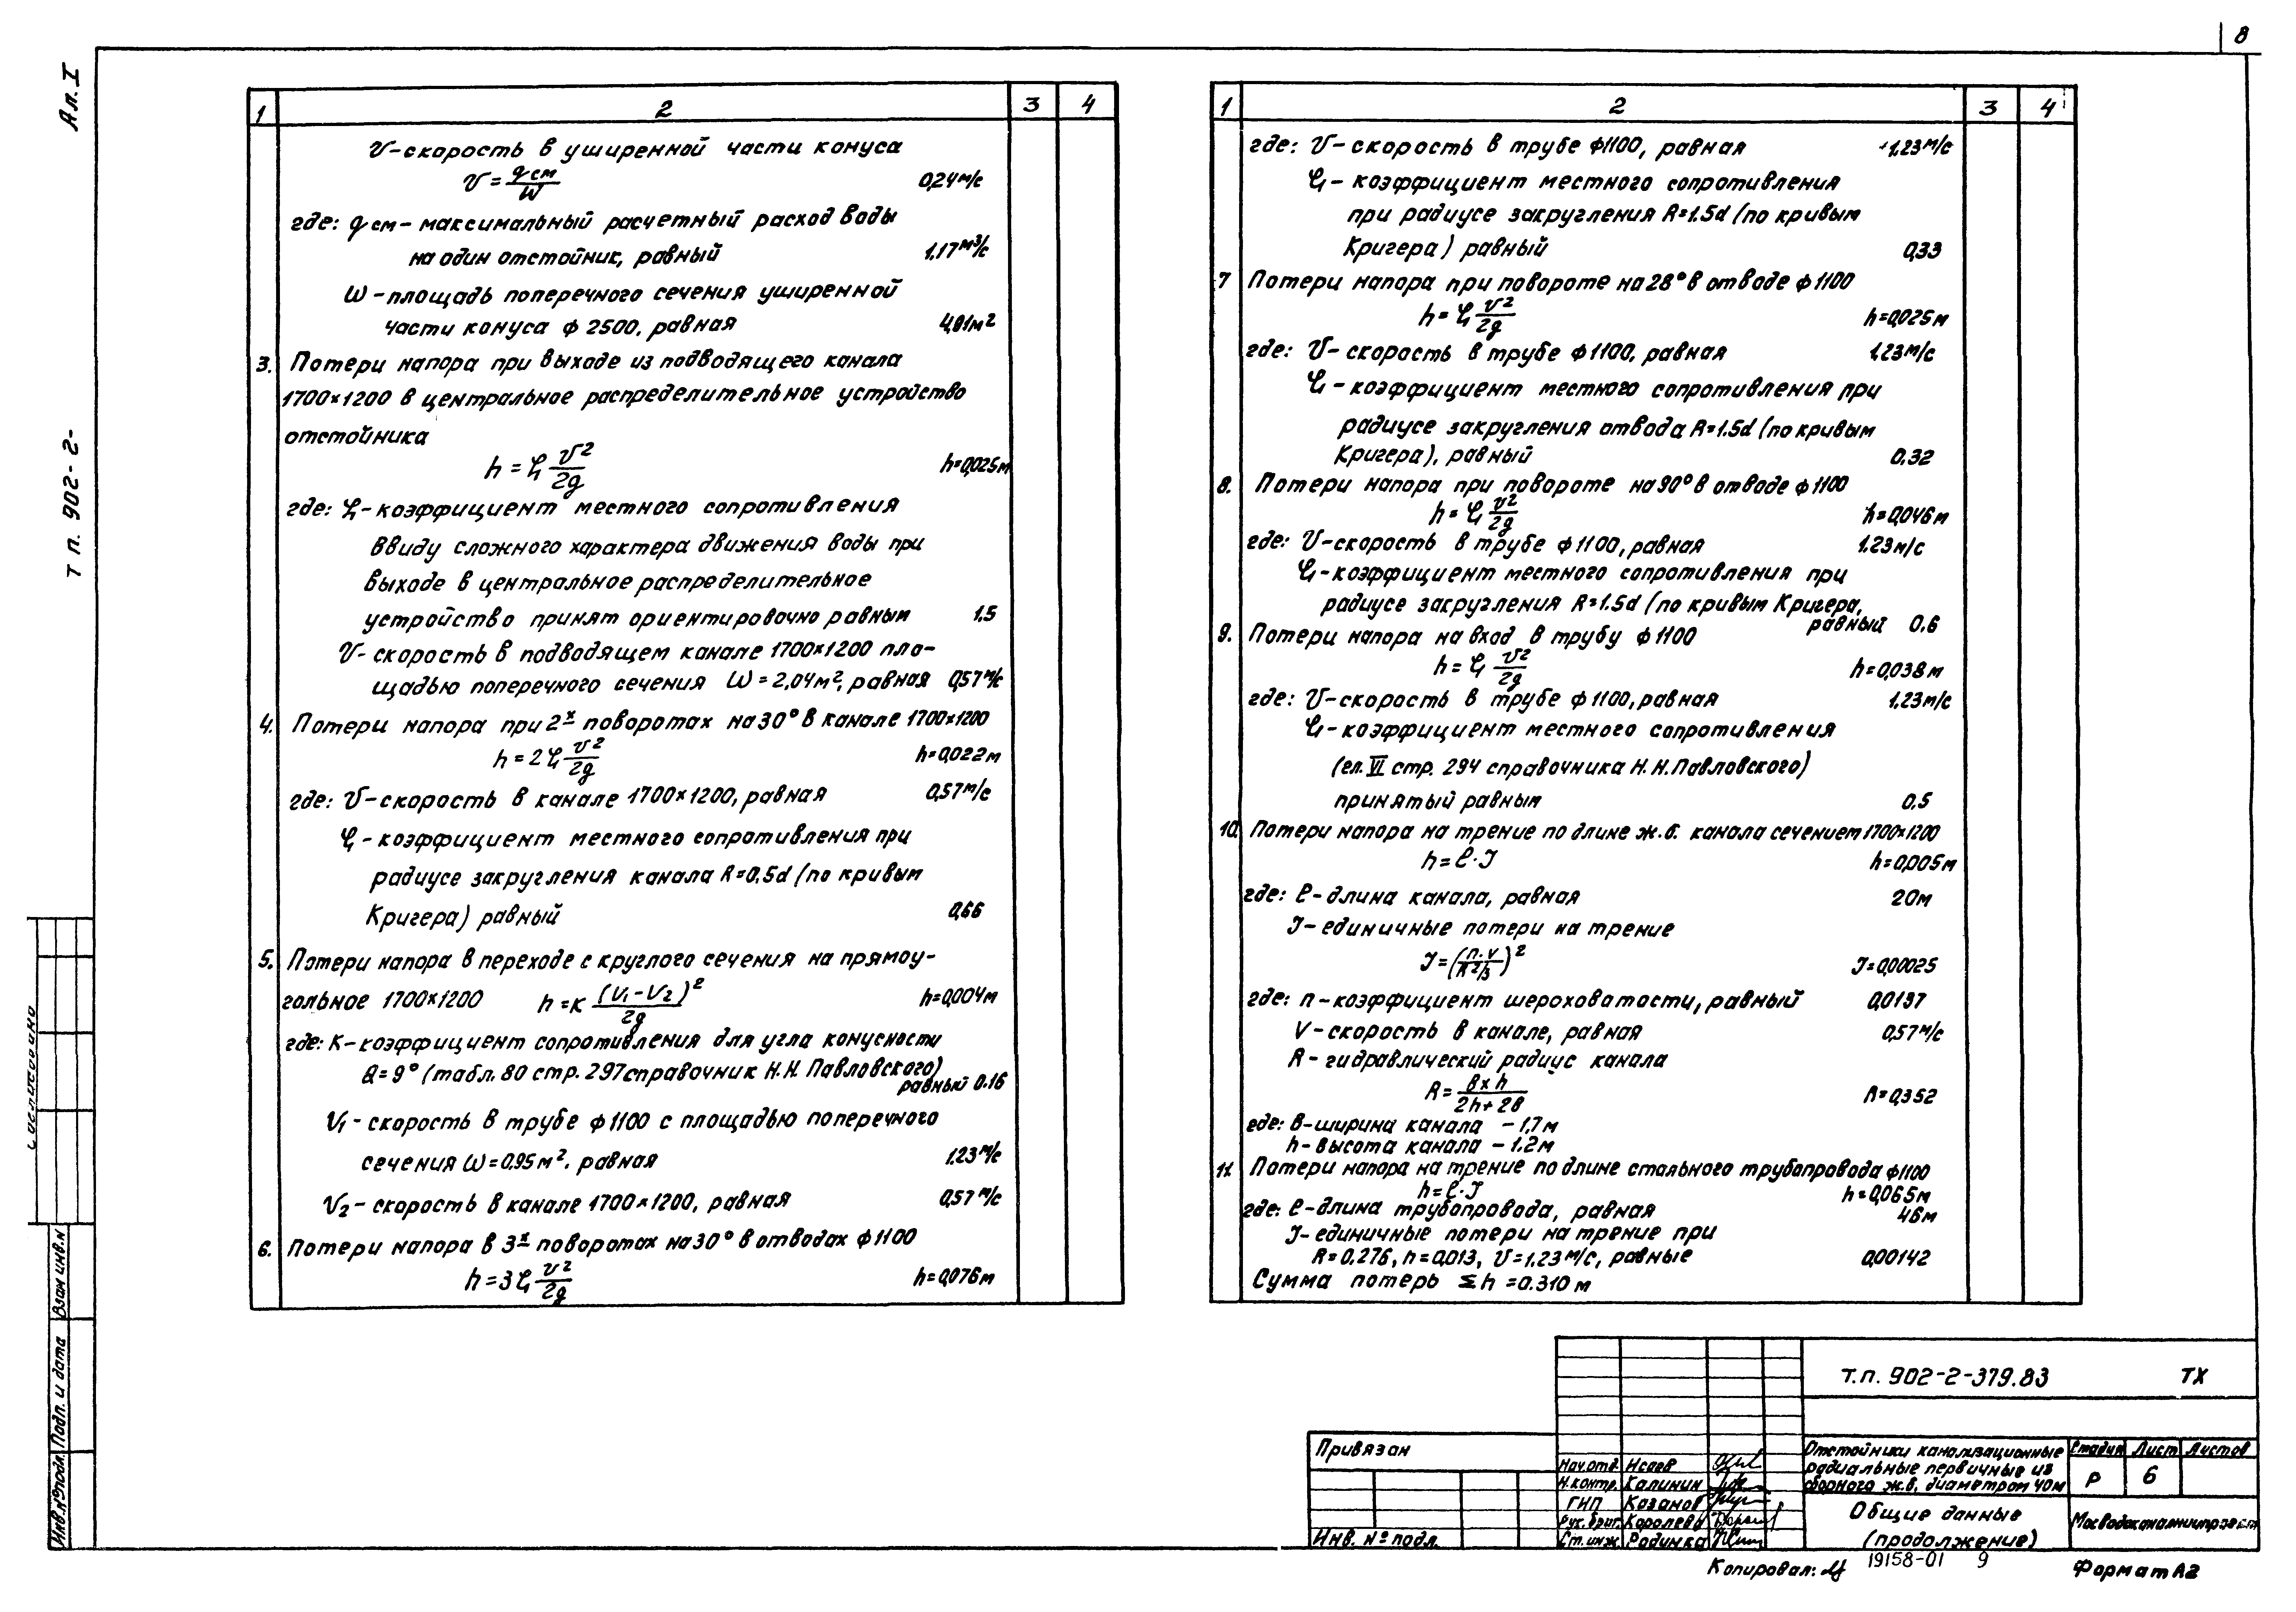 8
Ал. I
т п. 902-2-
1 2 3 4
V-скорость в уширенной части конуса
V = qсм/W 0,24 м/с
где: qсм - максимальный расчетный расход воды
на один отстойник, равный 1,17 м³/с
W - площадь поперечного сечения уширенной
части конуса ф 2500, равная 4,91 м²
3. Потери напора при выходе из подводящего канала
1700×1200 в центральное распределительное устройство
отстойника
h = ξ V²/2g h=0,025 м
где: ξ - коэффициент местного сопротивления
Ввиду сложного характера движения воды при
выходе в центральное распределительное
устройство принят ориентировочно равным 1,5
V- скорость в подводящем канале 1700×1200 пло-
щадью поперечного сечения W = 2,04 м², равная 0,57 м/с
4. Потери напора при 2х поворотах на 30° в канале 1700×1200
h = 2ξ V²/2g h=0,022 м
где: V-скорость в канале 1700×1200, равная 0,57 м/с
ξ - коэффициент местного сопротивления при
радиусе закругления канала R=0,5d (по кривым
Кригера) равный 0,66
5. Потери напора в переходе с круглого сечения на прямоу-
гольное 1700×1200 h = к (V₁-V₂)²/2g h=0,004 м
где: К-коэффициент сопротивления для угла конусности
Q = 9° (табл. 80 стр. 297 справочник Н.Н. Павловского)
равный 0.16
V₁ - скорость в трубе ф1100 с площадью поперечного
сечения W=0,95 м², равная 1,23 м/с
V₂ - скорость в канале 1700×1200, равная 0,57 м/с
6. Потери напора в 3х поворотах на 30° в отводах ф1100
h = 3ξ V²/2g h=0,076 м
1 2 3 4
где: V-скорость в трубе ф1100, равная 1,23 м/с
ξ - коэффициент местного сопротивления
при радиусе закругления R=1.5d (по кривым
Кригера) равный 0,33
7 Потери напора при повороте на 28° в отводе ф1100
h = ξ V²/2g h=0,025 м
где: V- скорость в трубе ф1100, равная 1,23 м/с
ξ - коэффициент местного сопротивления при
радиусе закругления отвода R=1.5d (по кривым
Кригера), равный 0.32
8. Потери напора при повороте на 90° в отводе ф1100
h = ξ V²/2g h=0,046 м
где: V-скорость в трубе ф1100, равная 1.23 м/с
ξ-коэффициент местного сопротивления при
радиусе закругления R=1.5d (по кривым Кригера,
равный 0.6
9. Потери напора на вход в трубу ф1100
h = ξ V²/2g h=0,038 м
где: V-скорость в трубе ф1100, равная 1,23 м/с
ξ - коэффициент местного сопротивления
(гл. VI стр. 294 справочника Н.Н. Павловского)
принятый равным 0.5
10. Потери напора на трение по длине ж.б. канала сечением 1700×1200
h = ℓ·J h=0,005 м
где: ℓ-длина канала, равная 20 м
J-единичные потери на трение
J = (n·V/R 2/3)² J=0,00025
где: n-коэффициент шероховатости, равный 0,0137
V-скорость в канале, равная 0,57 м/с
R - гидравлический радиус канала
R = в×h/2h+2в R=0,352
где: в-ширина канала - 1,7 м
h-высота канала - 1.2 м
11. Потери напора на трение по длине стального трубопровода ф1100
h = ℓ·J h=0,065 м
где: ℓ-длина трубопровода, равная 46 м
J-единичные потери на трение при
R=0.276, n=0,013, V=1,23 м/с, равные 0,00142
Сумма потерь Σh = 0.310 м
Согласовано
Взам инв.N
Подп. и дата
Инв.№ подл.
Привязан
Инв. № подл.
Нач.отд. Исаев
Н.контр. Калинин
ГИП Казанов
Рук. бриг. Королева
Ст. инж. Родинка
Т.п. 902-2-379.83 ТХ
Отстойники канализационные
радиальные первичные из
сборного ж.в. диаметром 40м
Стадия Лист Листов
Р 6
Общие данные
(продолжение)
Мосводоканалниипроект
Копировал: 19158-01 9 Формат А2